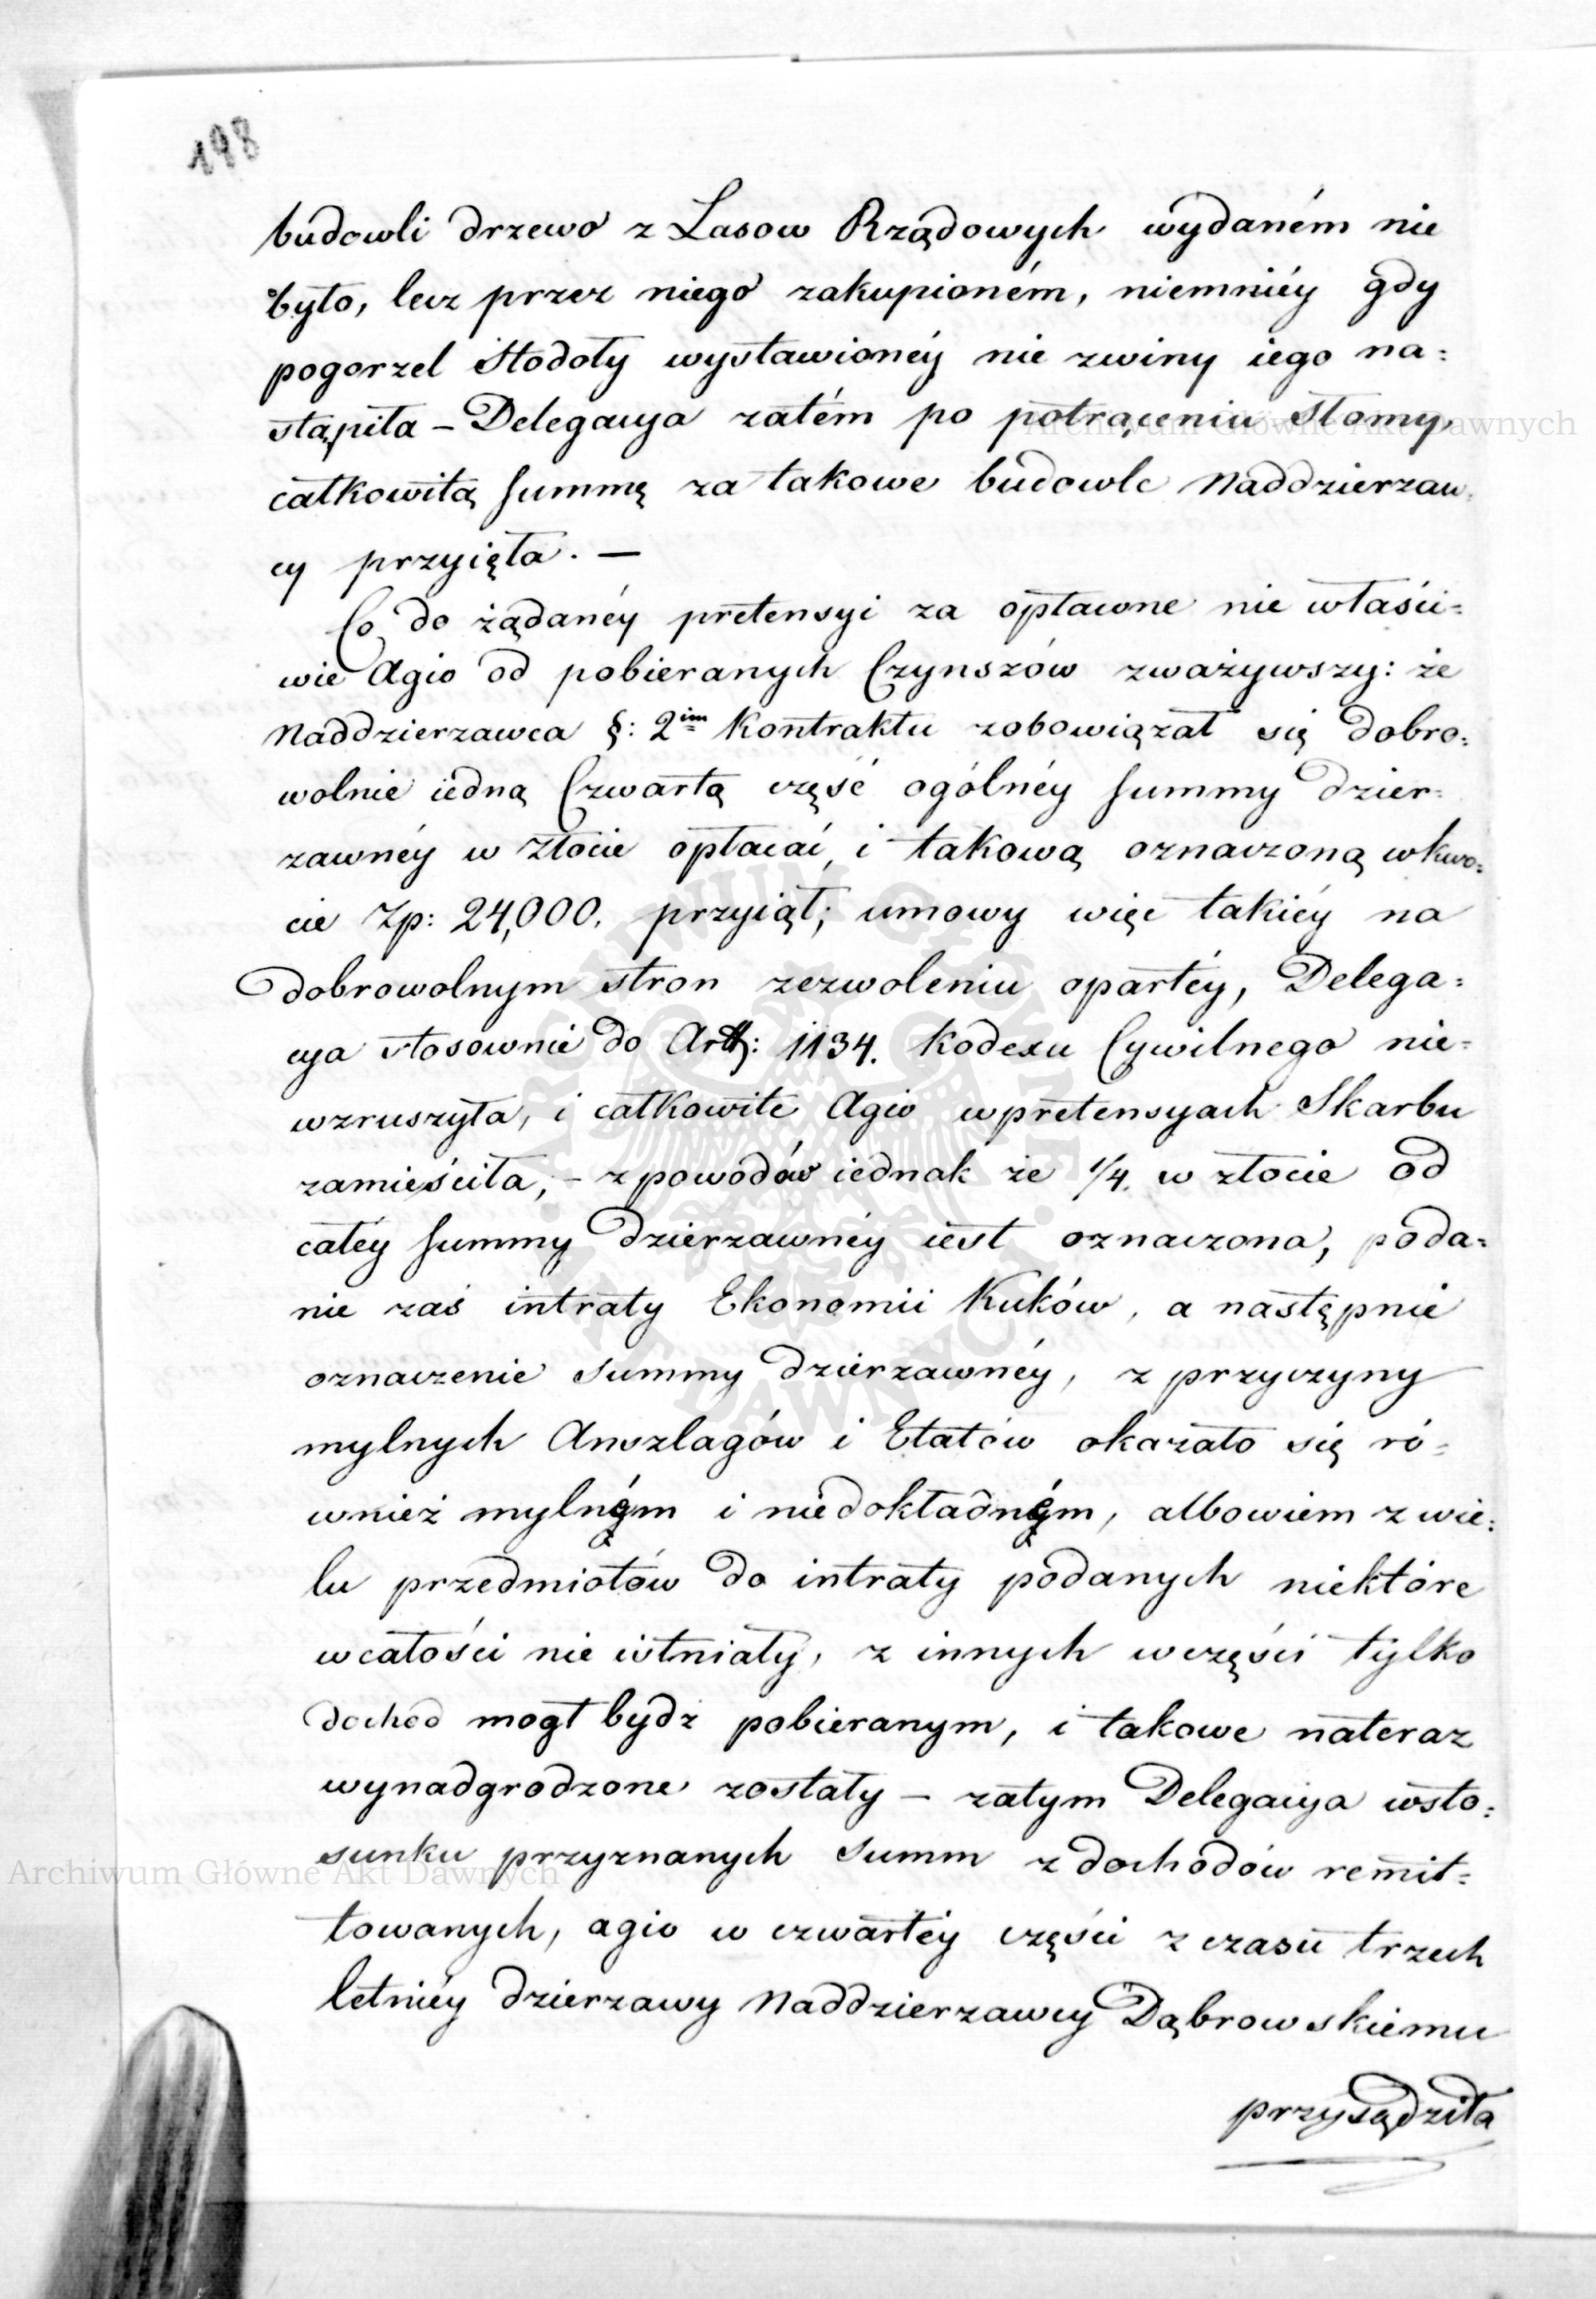 198
budowli drzewo z Lasow Rządowych wydaném nie
było, lecz przez niego zakupioném, niemniéy gdy
pogorzel Stodoły wystawionéy nie zwiny iego na=
stąpiła – Delegacya zatém po potrąceniu Słomy,
całkowitą summę za takowe budowle Naddzierzaw=
cy przyięła. —
Co do żądanéy pretensyi za opłacone nie właści=
wie Agio od pobieranych Czynszów zważywszy: że
Naddzierzawca §: 2im Kontraktu zobowiązał się dobro=
wolnie iedną Czwartą część ogólnéy summy dzier=
zawnéy w złocie opłacać, i takową oznaczoną wkwo=
cie Zp: 24,000. przyiął; umowy więc takiéy na
dobrowolnym stron zezwoleniu opartéy, Delega=
cya stosownie do Art: 1134. Kodexu Cywilnego nie=
wzruszyła, i całkowite Agio wpretensyach Skarbu
zamieściła, – zpowodów iednak że 1/4. w złocie od
całéy summy dzierzawnéy iest oznaczona, poda=
nie zaś intraty Ekonomii Kuków, a następnie
oznaczenie summy dzierzawnéy, z przyczyny
mylnych Anszlagów i Etatów okazało się ró=
wnież mylném i niedokładném, albowiem z wie=
lu przedmiotów do intraty podanych niektóre
wcałości nie istniały, z innych wczęści tylko
dochod mogł bydź pobieranym, i takowe nateraz
wynadgrodzone zostały – zatym Delegacya wsto=
sunku przyznanych summ z dochodów remit=
towanych, agio w czwartéy części z czasu trzech
letniéy dzierzawy Naddzierzawcy Dąbrowskiemu
przysądziła
Archiwum Główne Akt Dawnych
Archiwum Główne Akt Dawnych
ARCHIWUM GŁÓWNE AKT DAWNYCH